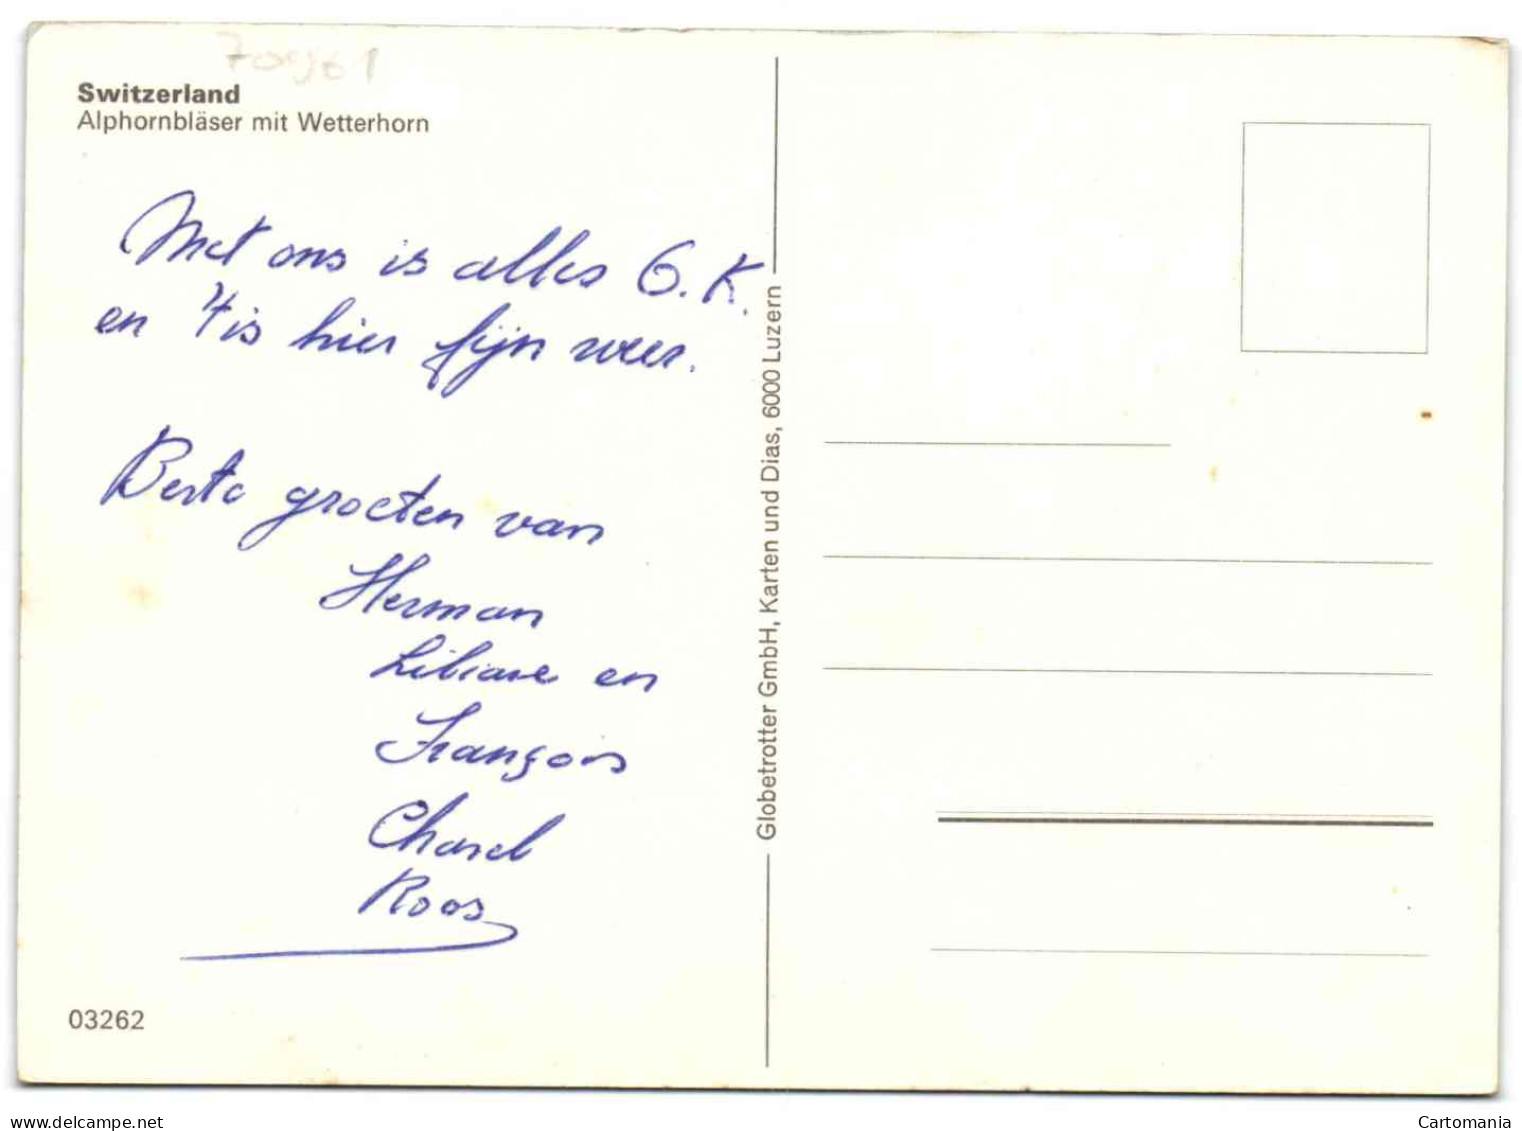 Switzerland
Alphornbläser mit Wetterhorn
Met ons is alles O.K.
en 't is hier fijn weer.
Beste groeten van
Herman
Liliane en
François
Charel
Roos
03262
Globetrotter GmbH, Karten und Dias, 6000 Luzern
www.delcampe.net
Cartomania